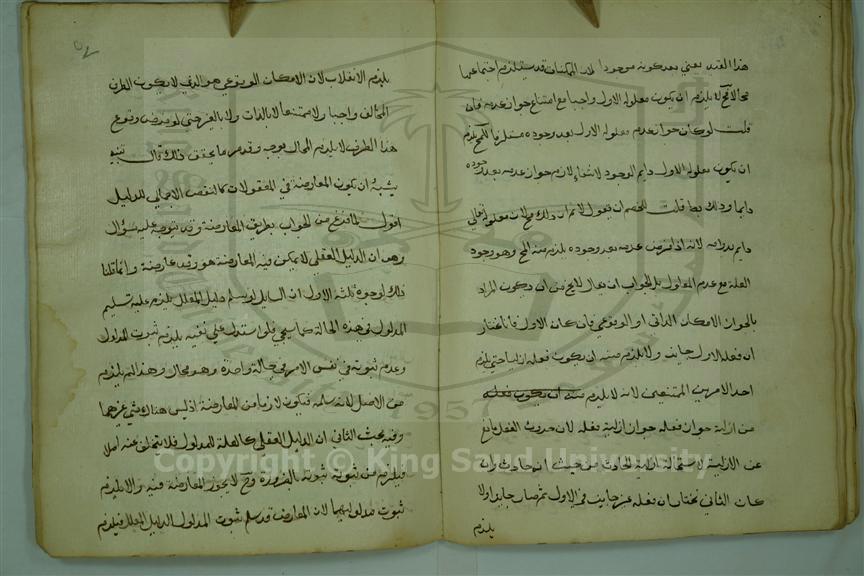 هذا القيد يعني بعد كونه موجودا لان الممكنات قد يستلزم اجتماعها
محالا فح لا يلزم ان يكون معلوله الاول واجبا مع امتناع جواز عدمه فان
قلت لو كان جواز عدم معلوله الاول بعد وجوده مستلزما للمح يلزم
ان يكون معلوله الاول دايم الوجود لانتفاء لازم جواز عدمه بعد وجوده
دايما وذلك بط قلت للخصم ان يقول لانم ان ذلك مح لان معلوله تعالى
دايم بدوامه لانه اذا فرض عدمه بعد وجوده يلزم منه المح وهو وجود
العلة مع عدم المعلول بل الجواب ان يقال لا يخ من ان يكون المراد
بالجواز الامكان الذاتي او الوقوعي فان كان الاول فانا نختار
ان فعله الاول جايز ولا يلزم منه ان يكون فعله ازليا حتى يلزم
احد الامرين الممتنعين لانه لا يلزم منه ان يكون فعله
من ازلية جواز فعله جواز ازلية فعله لان حدوث الفعل مانع
عن الازلية لاستحالة ازلية الحادث من حيث انه حادث وان
كان الثاني نختار ان فعله غير جايز في الاول ثم صار جايزا ولا
يلزم
يلزم الانقلاب لان الامكان الوقوعي هو الذي لا يكون الطرف
المخالف واجبا ولا ممتنعا لا بالذات ولا بالغير حتى لو فرض وقوع
هذا الطرف لا يلزم المحال بوجه وقد مر ما يحقق ذلك قال تنبيه
يشبه ان يكون المعارضة في المعقولات كالنقض الاجمالي للدليل
اقول لما فرغ من الجواب بطريق المعارضة وقد يتوجه عليه سؤال
وهو ان الدليل العقلي لا يمكن فيه المعارضة هو وقد عارضه وانما قلنا
ذلك لوجوه ثلثة الاول ان السايل لو سلم دليل المعلل يلزم عليه تسليم
المدلول في هذه الحالة كما سيجي فلو استدل على نفيه يلزم ثبوت المدلول
وعدم ثبوته في نفس الامر في حالة واحدة وهو محال وهذا لم يلزم
من الاصل لانه سلمه فيكون لازما من المعارضة اذ ليس هناك شي غيرهما
وفيه بحث الثاني ان الدليل العقلي كالعلة للمدلول فلا يتخلف عنه اصلا
فيلزم من ثبوته ثبوته بالضرورة وح لا يجوز المعارضة فيه والا يلزم
ثبوت مدلوليهما لان المعارض قد سلم ثبوت المدلول الدليل المعلل فيلزم
Copyright © King Saud University
1957